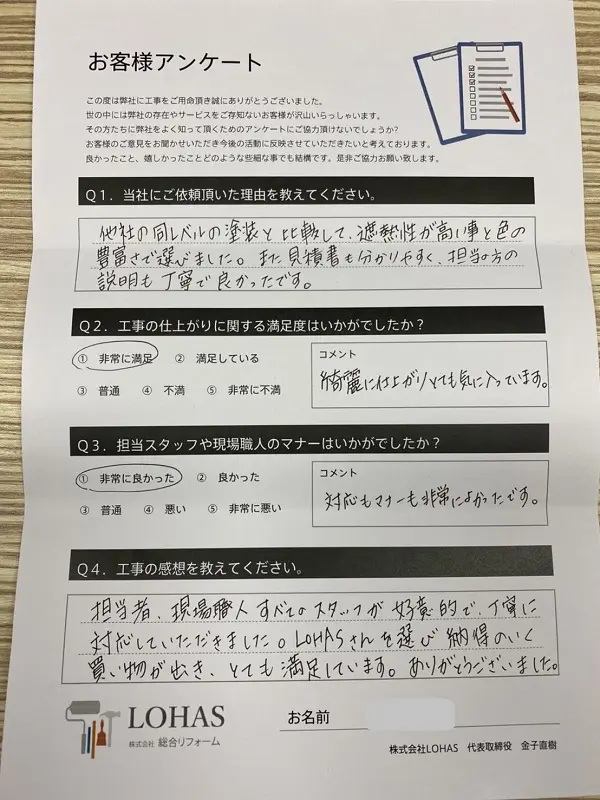 お客様アンケート
この度は弊社に工事をご用命頂き誠にありがとうございました。
世の中には弊社の存在やサービスをご存知ないお客様が沢山いらっしゃいます。
その方たちに弊社をよく知って頂くためのアンケートにご協力頂けないでしょうか?
お客様のご意見をお聞かせいただき今後の活動に反映させていただきたいと考えております。
良かったこと、嬉しかったことどのような些細な事でも結構です。是非ご協力お願い致します。
Q1. 当社にご依頼頂いた理由を教えてください。
他社の同レベルの塗装と比較して、遮熱性が高い事と色の
豊富さで選びました。また見積書も分かりやすく、担当の方の
説明も丁寧で良かったです。
Q2. 工事の仕上がりに関する満足度はいかがでしたか?
① 非常に満足 ② 満足している
③ 普通 ④ 不満 ⑤ 非常に不満
コメント
綺麗に仕上がりとても気に入っています。
Q3. 担当スタッフや現場職人のマナーはいかがでしたか?
① 非常に良かった ② 良かった
③ 普通 ④ 悪い ⑤ 非常に悪い
コメント
対応もマナーも非常によかったです。
Q4. 工事の感想を教えてください。
担当者、現場職人すべてのスタッフが好意的で、丁寧に
対応していただきました。LOHASさんを選び納得のいく
買い物が出き、とても満足しています。ありがとうございました。
LOHAS
株式会社 総合リフォーム
お名前
株式会社LOHAS 代表取締役 金子直樹